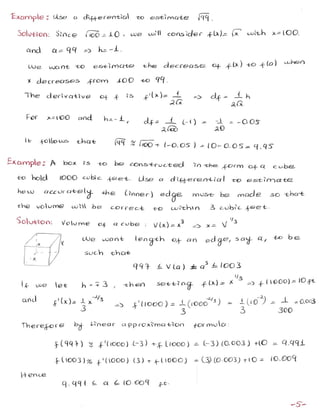 Example: Use a differential to estimate √99.
Solution: Since √100 = 10, we will consider f(x) = √x with x=100.
and a = 99 => h = -1.
We want to estimate the decrease of f(x) to f(a) when
x decreases from 100 to 99.
The derivative of f is f'(x) = 1/2√x => df = 1/2√x h
For x=100 and h=-1, df = 1/2√100 (-1) = -1/20 = -0.05
It follows that √99 ≈ √100 + (-0.05) = 10 - 0.05 = 9.95
Example: A box is to be constructed in the form of a cube
to hold 1000 cubic feet. Use a differential to estimate
how accurately the (inner) edge must be made so that
the volume will be correct to within 3 cubic feet.
Solution: Volume of a cube: V(x) = x³ => x = V^1/3
We want length of an edge, say a, to be
such that
997 ≤ V(a) = a³ ≤ 1003
If we let h = ∓3, then setting f(x) = x^1/3 => f(1000) = 10 ft
and f'(x) = 1/3 x^-2/3 => f'(1000) = 1/3 (1000^-2/3) = 1/3 (10^-2) = 1/300 = 0.003
Therefore by linear approximation formula:
f(997) ≈ f'(1000) (-3) + f(1000) = (-3)(0.003) + 10 = 9.991
f(1003) ≈ f'(1000) (3) + f(1000) = (3)(0.003) + 10 = 10.009
Hence
9.991 ≤ a ≤ 10.009 ft.
-5-